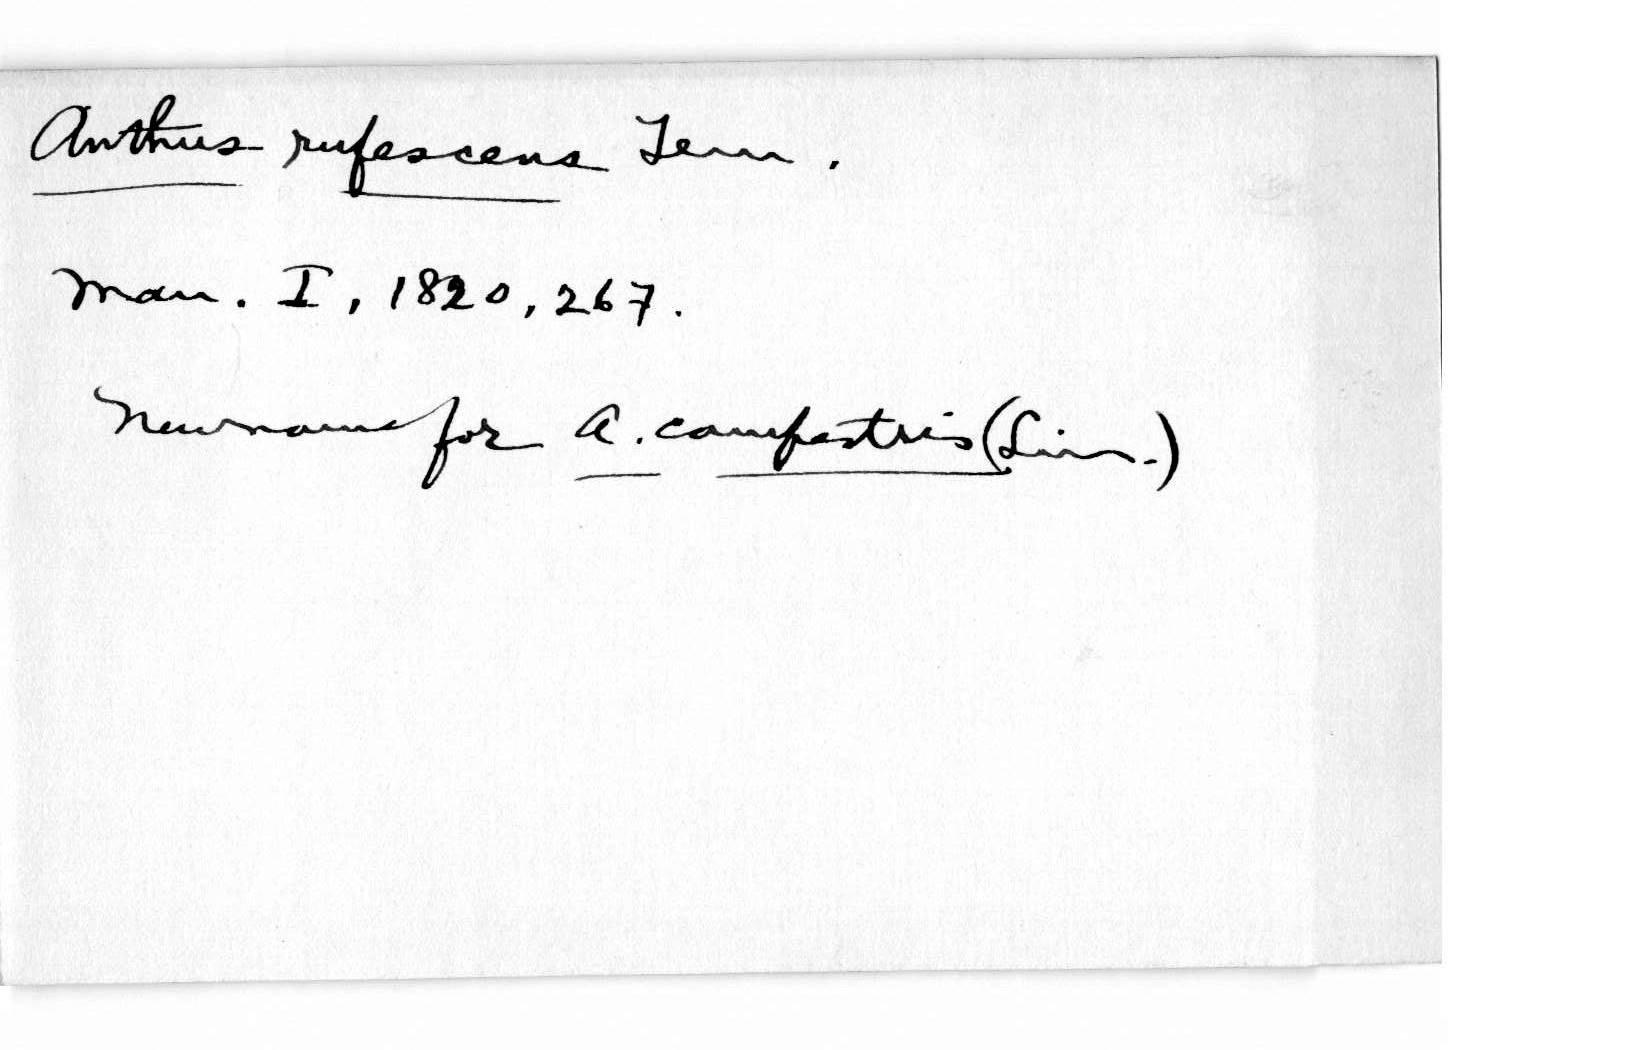 Anthus rufescens Tem.
Man. I, 1820, 267.
New name for A. campestris (Linn.)